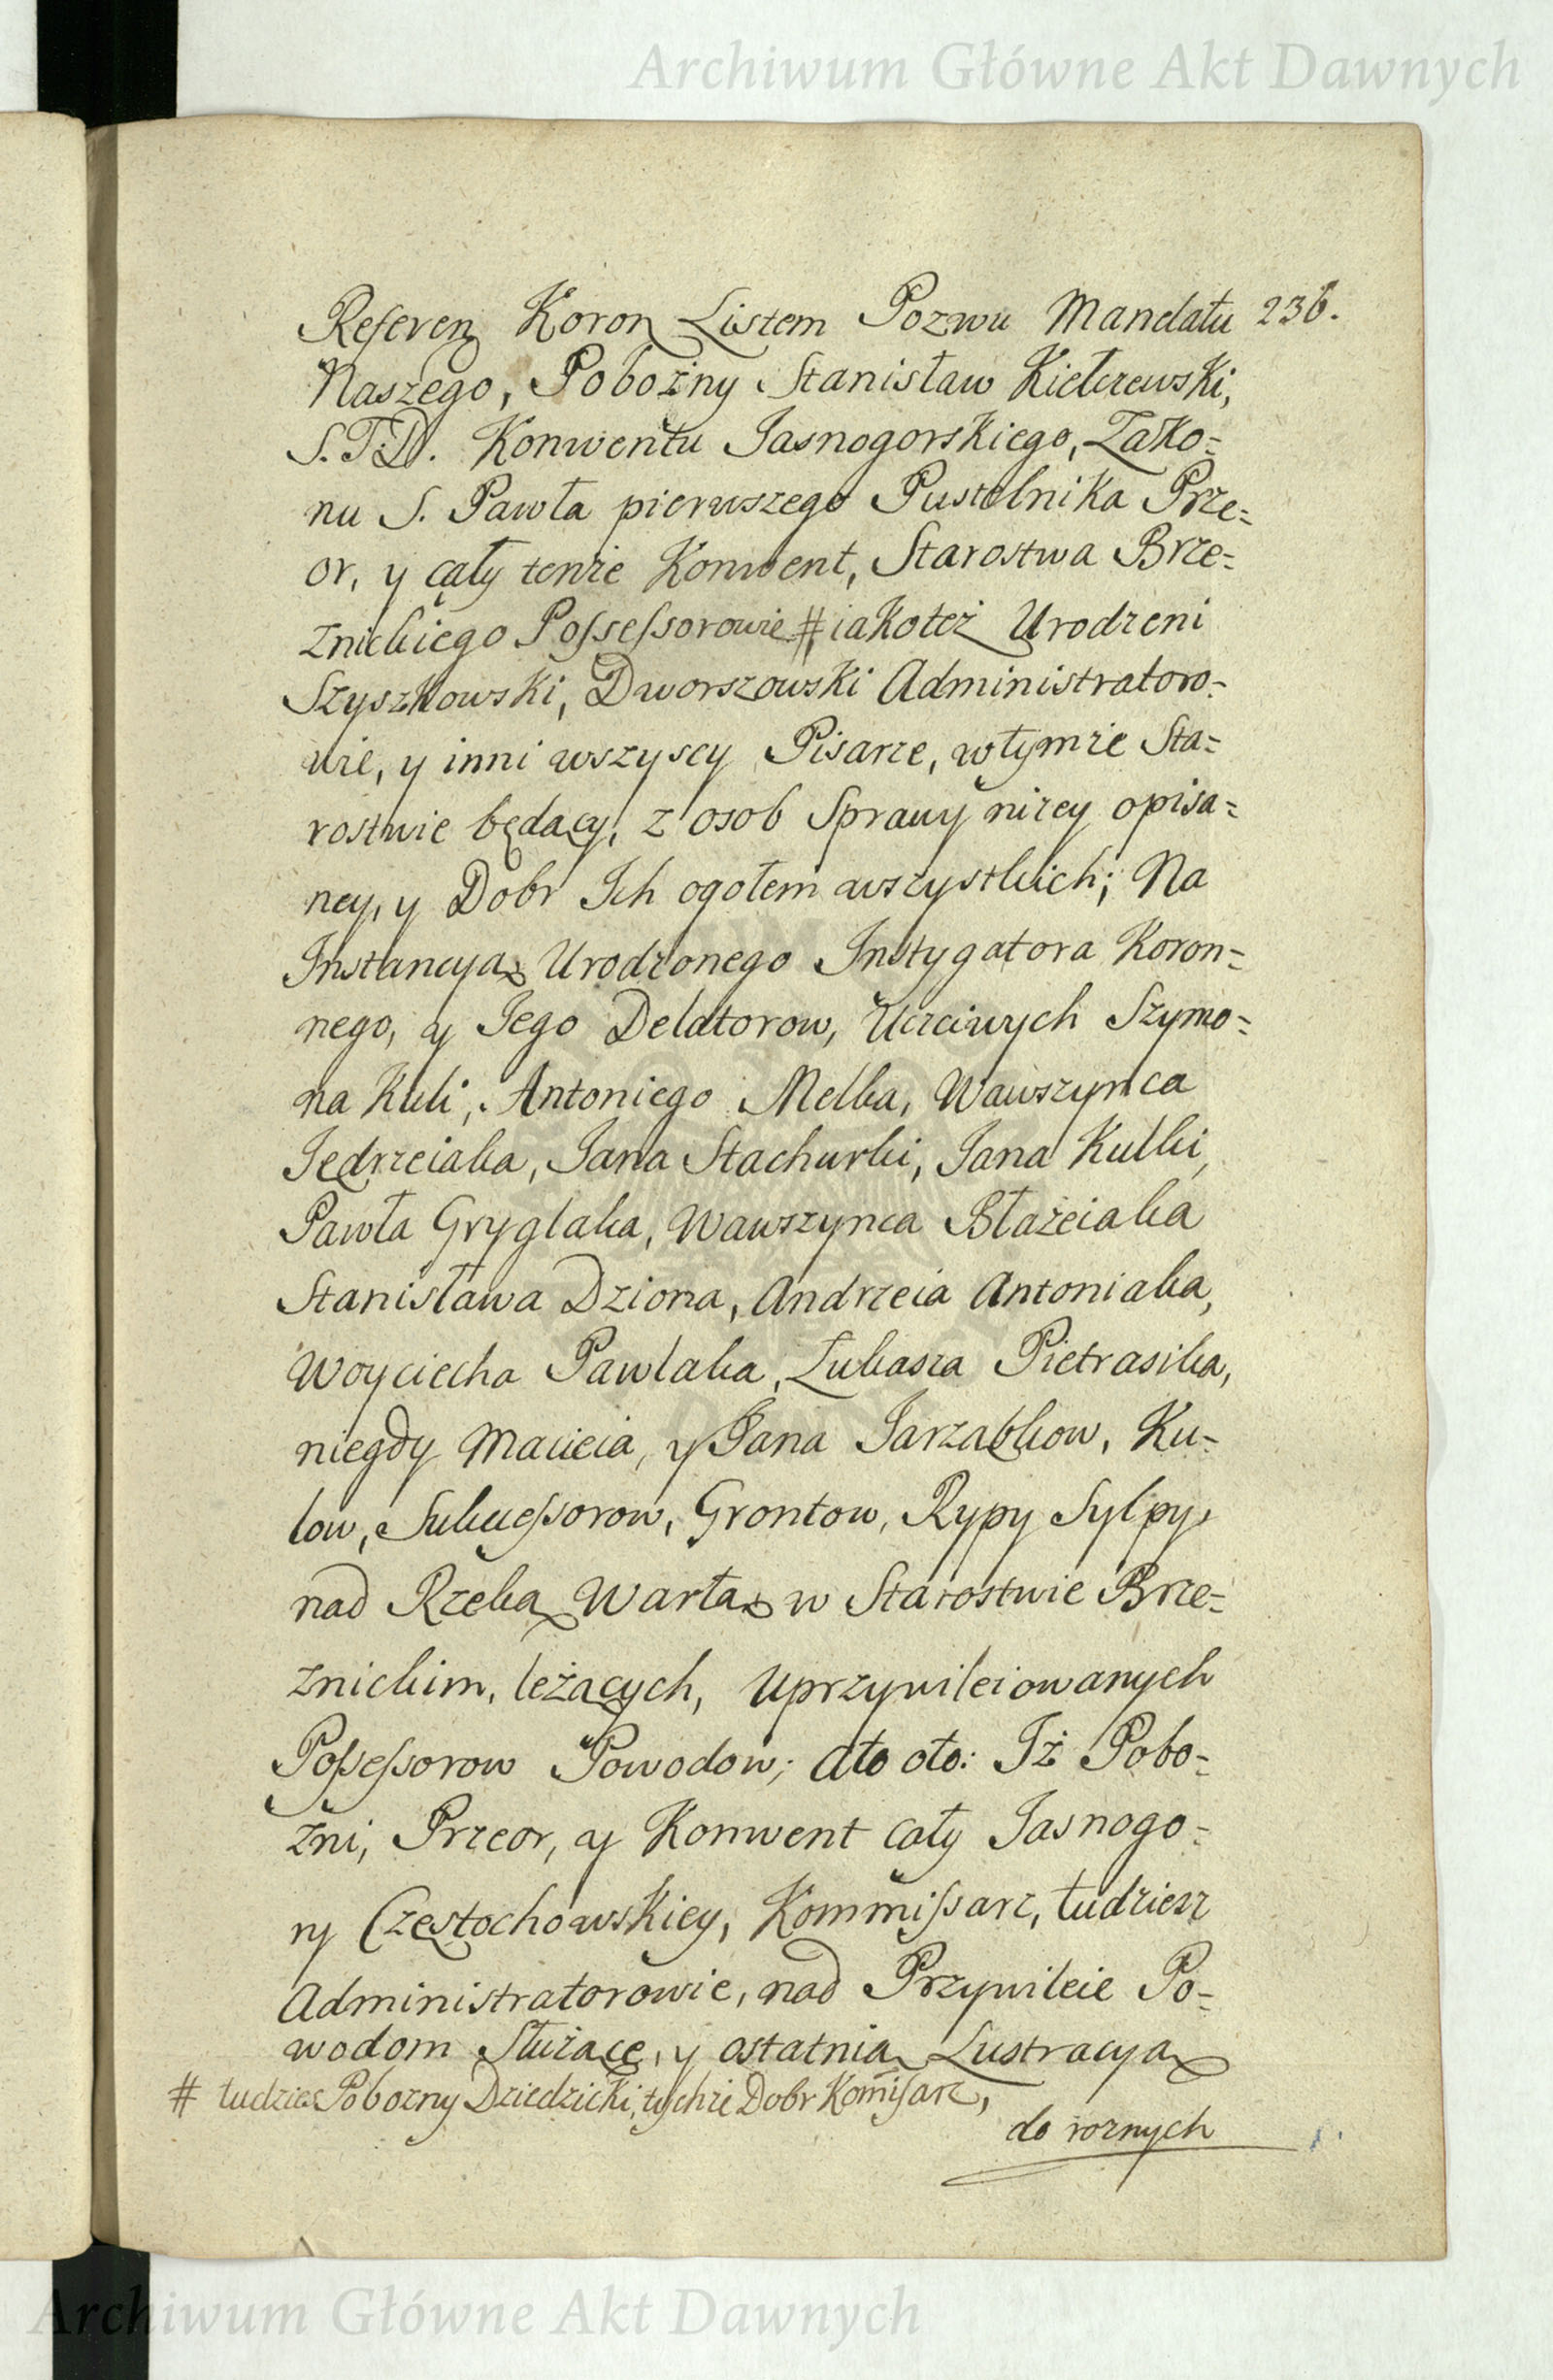 Archiwum Główne Akt Dawnych
Referen Koron Listem Pozwu Mandatu 236.
Naszego, Pobożny Stanisław Kiełczewski,
S.T.D. Konwentu Jasnogorskiego, Zako=
nu S. Pawła pierwszego Pustelnika Prze=
or, y cały tenże Konwent, Starostwa Brze=
znickiego Possessorowie # iakoteż Urodzeni
Szyszkowski, Dworszowski Administratoro=
wie, y inni wszyscy Pisarze, wtymże Sta=
rostwie będący, z osob Sprawy niżey opisa=
ney, y Dobr Ich ogołem wszystkich; Na
Instancyą Urodzonego Instygatora Koron=
nego, y Jego Delatorow, Uczciwych Szymo=
na Kuli, Antoniego Melka, Wawszynca
Jędrzeiaka, Jana Stachurki, Jana Kulki,
Pawła Gryglaka, Wawszynca Błażeiaka
Stanisława Dziona, Andrzeia Antoniaka,
Woyciecha Pawlaka, Łukasza Pietrasika,
niegdy Macieia, y Jana Jarząbkow, Ku=
low, Sukcessorow, Grontow, Rypy Sylpy,
nad Rzeką Wartą w Starostwie Brze=
znickim, leżących, Uprzywileiowanych
Possessorow Powodow; ato oto: Iż Pobo=
żni, Przeor, y Konwent cały Jasnogo=
ry Częstochowskiey, Kommissarz, tudziesz
Administratorowie, nad Przywileie Po=
wodom Służące, y ostatnią Lustracyą
# tudzies Pobozny Dziedzicki, tychże Dobr Komissarz,
do roznych
Archiwum Główne Akt Dawnych